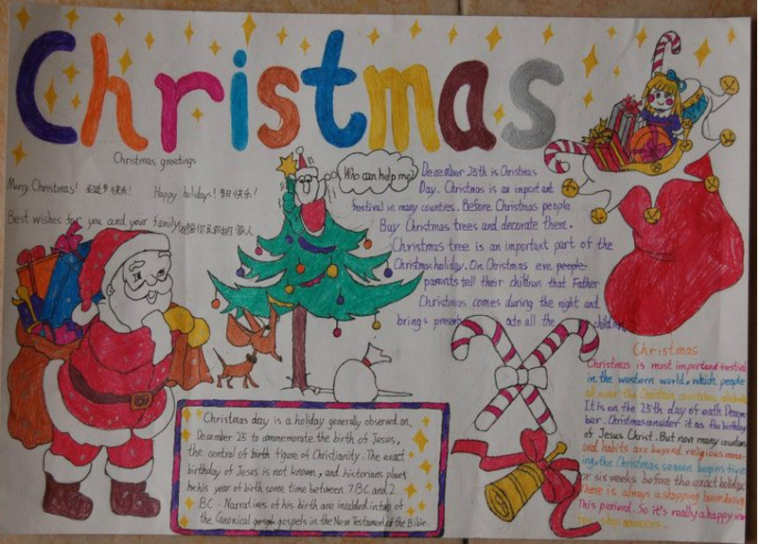 Christmas
Christmas greetings
Merry Christmas! 圣诞节快乐! Happy holidays! 节日快乐!
Best wishes for you and your family
Who can help me?
December 25th is Christmas
Day. Christmas is an important
festival in many counties. Before Christmas people
Buy Christmas trees and decorate them.
Christmas tree is an important part of the
Christmas holiday. On Christmas eve people
parents tell their children that Father
Christmas comes during the night and
brings presents all the children
Christmas
Christmas is most important festival
in the western world, which people
all over the
It is on the 25th day of each Decem
ber. Christians consider it as the birthday
of Jesus Christ. But now many countries
and habits are beyond religious
ing. the Christmas season begins five
or six weeks before the exact holiday
There is always a shopping boom during
this period. So it's really a happy
Christmas day is a holiday generally observed on
December 25 to commemorate the birth of Jesus,
the central of birth figure of Christianity. The exact
birthday of Jesus is not known, and historians place
he his year of birth some time between 7 BC and 2
BC. Narratives of his birth are included in two of
the Canonical gospels in the New Testament of the Bible